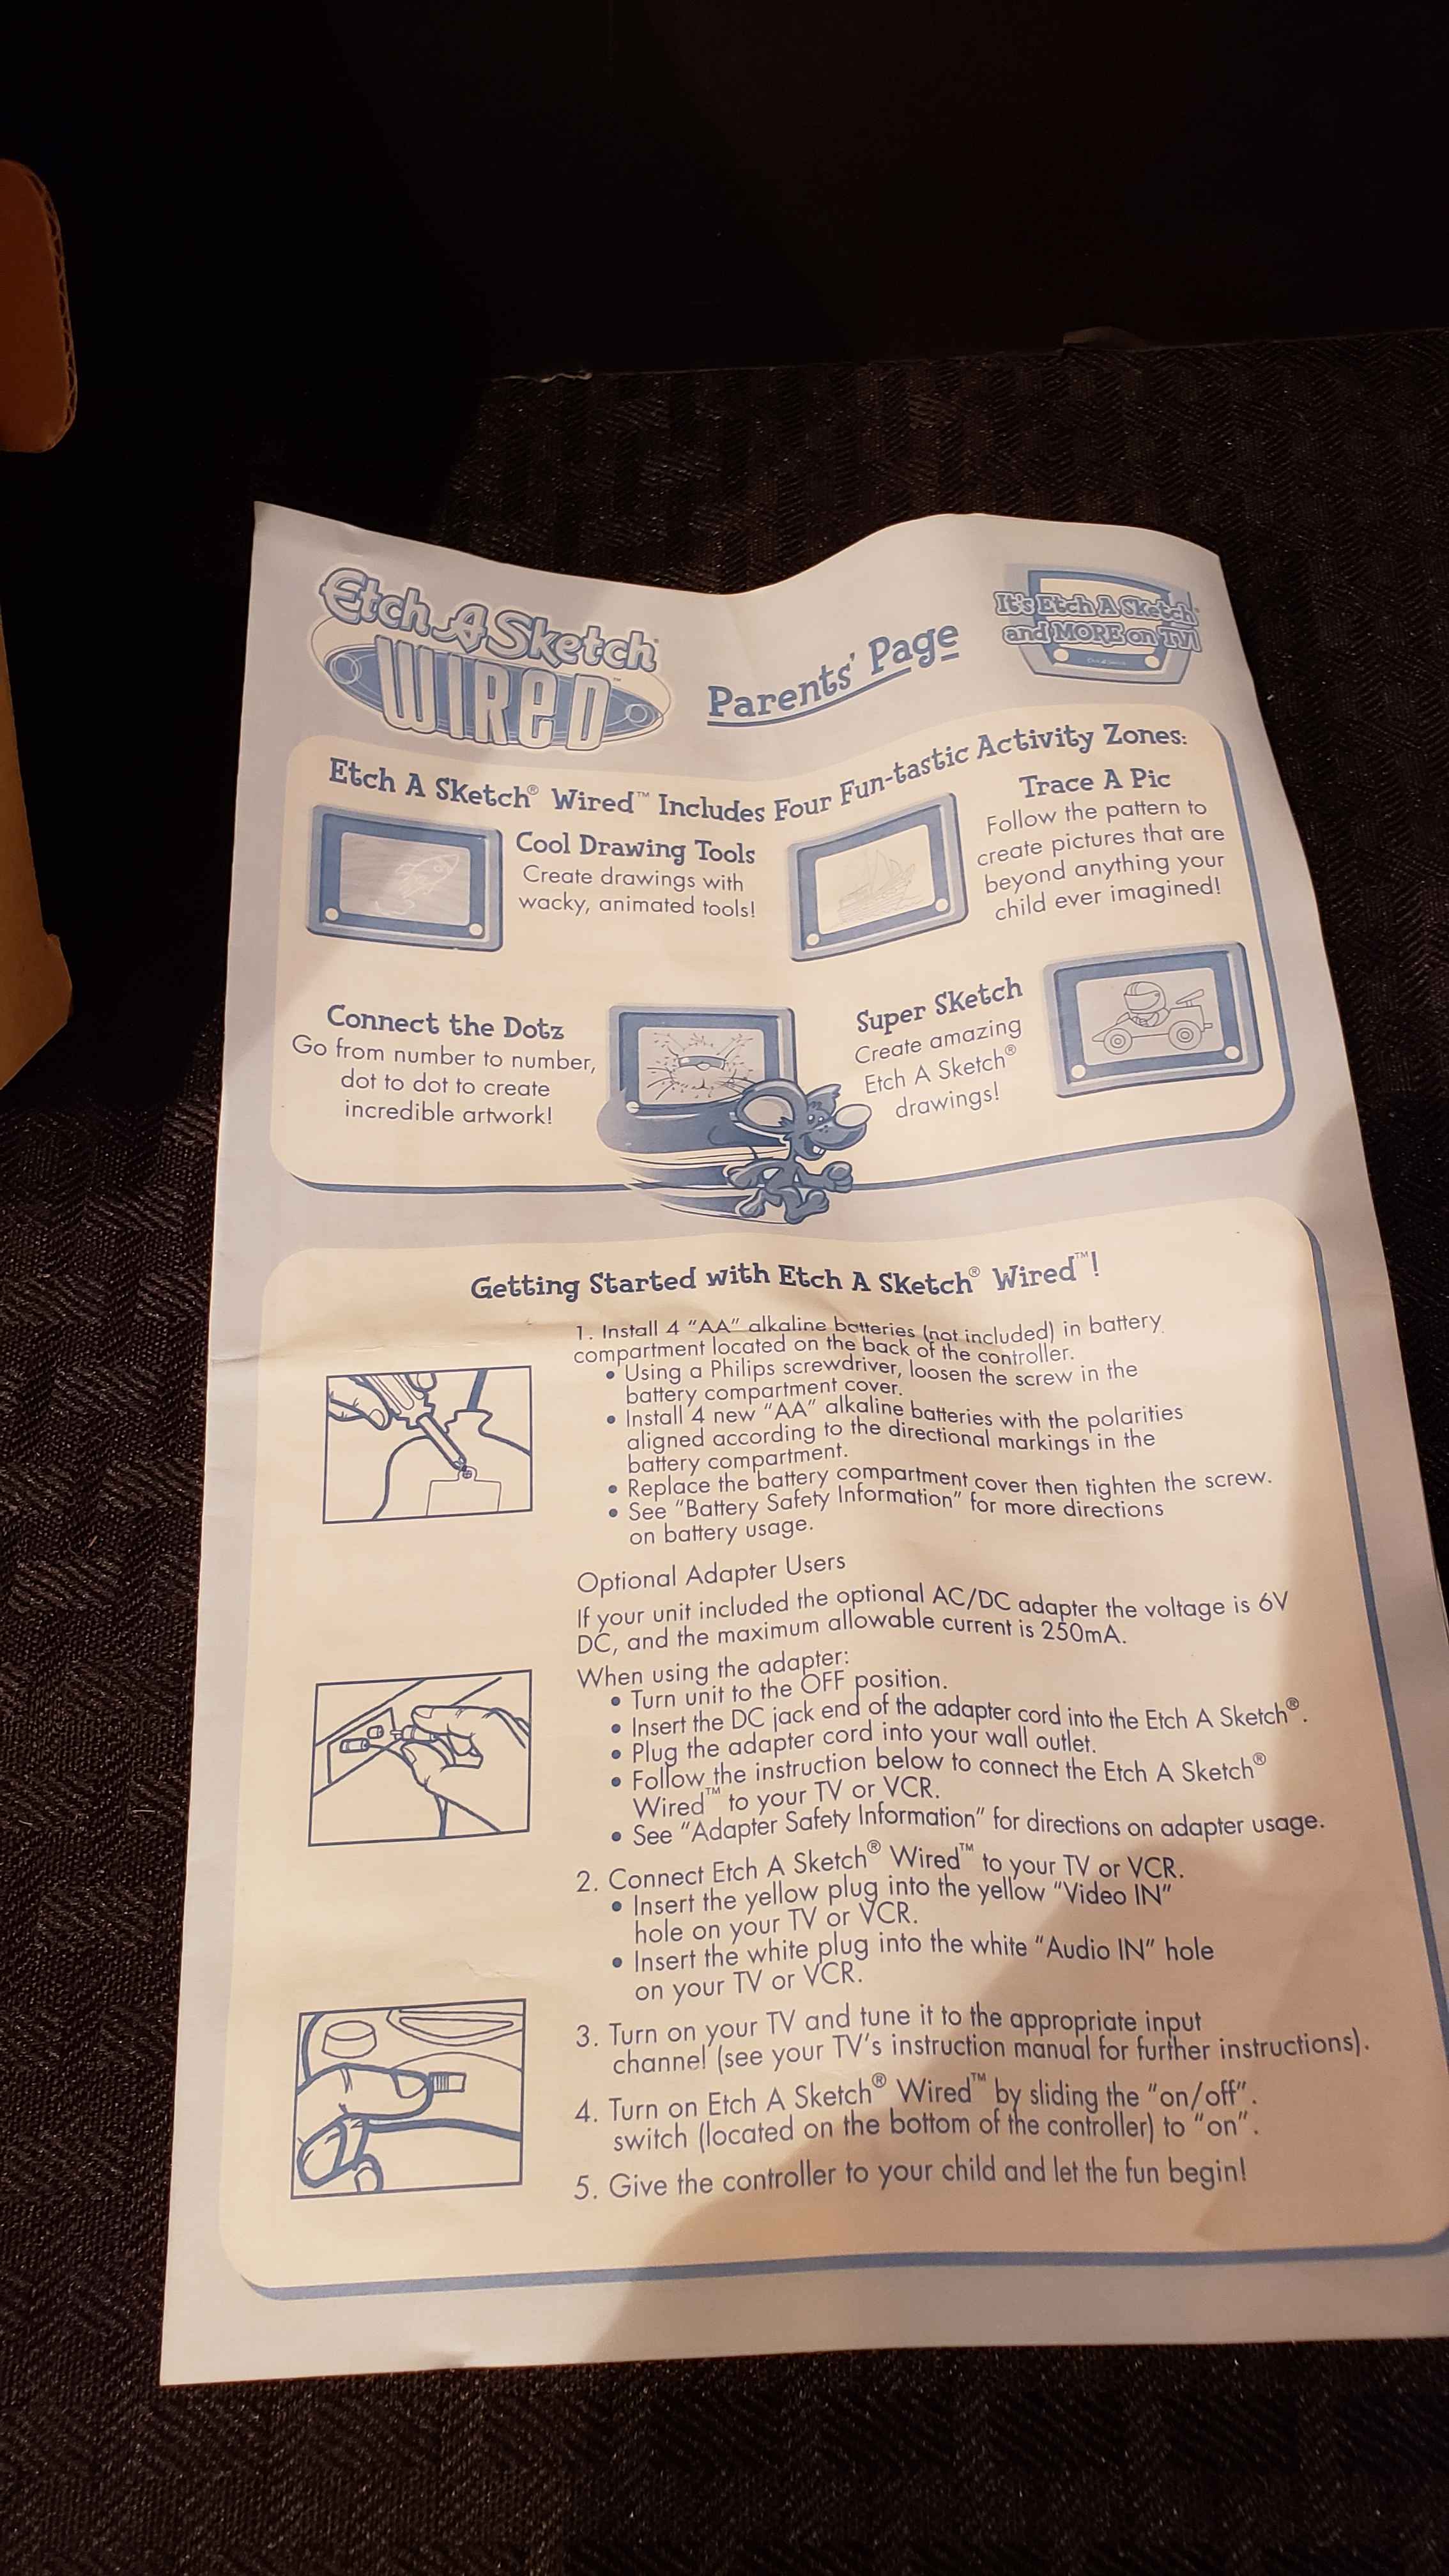 Etch A Sketch®
WIRED™
Parents' Page
It's Etch A Sketch®
and MORE on TV!
Etch A Sketch® Wired™ Includes Four Fun-tastic Activity Zones:
Cool Drawing Tools
Create drawings with
wacky, animated tools!
Trace A Pic
Follow the pattern to
create pictures that are
beyond anything your
child ever imagined!
Connect the Dotz
Go from number to number,
dot to dot to create
incredible artwork!
Super Sketch
Create amazing
Etch A Sketch®
drawings!
Getting Started with Etch A Sketch® Wired™!
1. Install 4 "AA" alkaline batteries (not included) in battery
compartment located on the back of the controller.
• Using a Philips screwdriver, loosen the screw in the
battery compartment cover.
• Install 4 new "AA" alkaline batteries with the polarities
aligned according to the directional markings in the
battery compartment.
• Replace the battery compartment cover then tighten the screw.
• See "Battery Safety Information" for more directions
on battery usage.
Optional Adapter Users
If your unit included the optional AC/DC adapter the voltage is 6V
DC, and the maximum allowable current is 250mA.
When using the adapter:
• Turn unit to the OFF position.
• Insert the DC jack end of the adapter cord into the Etch A Sketch®.
• Plug the adapter cord into your wall outlet.
• Follow the instruction below to connect the Etch A Sketch®
Wired™ to your TV or VCR.
• See "Adapter Safety Information" for directions on adapter usage.
2. Connect Etch A Sketch® Wired™ to your TV or VCR.
• Insert the yellow plug into the yellow "Video IN"
hole on your TV or VCR.
• Insert the white plug into the white "Audio IN" hole
on your TV or VCR.
3. Turn on your TV and tune it to the appropriate input
channel (see your TV's instruction manual for further instructions).
4. Turn on Etch A Sketch® Wired™ by sliding the "on/off".
switch (located on the bottom of the controller) to "on".
5. Give the controller to your child and let the fun begin!